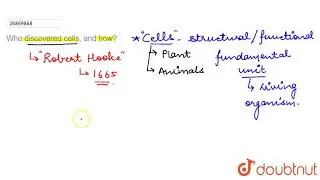 26869868
Who discovered cells, and how?
"Robert Hooke"
1665
*"Cells"- structural/functional
Plant fundamental
Animals unit
living
organism.
doubtnut